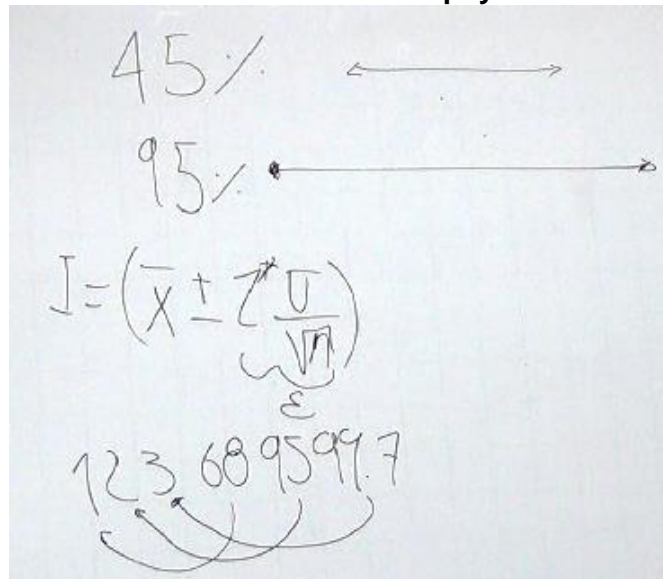 45%
95%
I = (x̄ ± Z* σ/√n)
ε
123 68 95 99.7